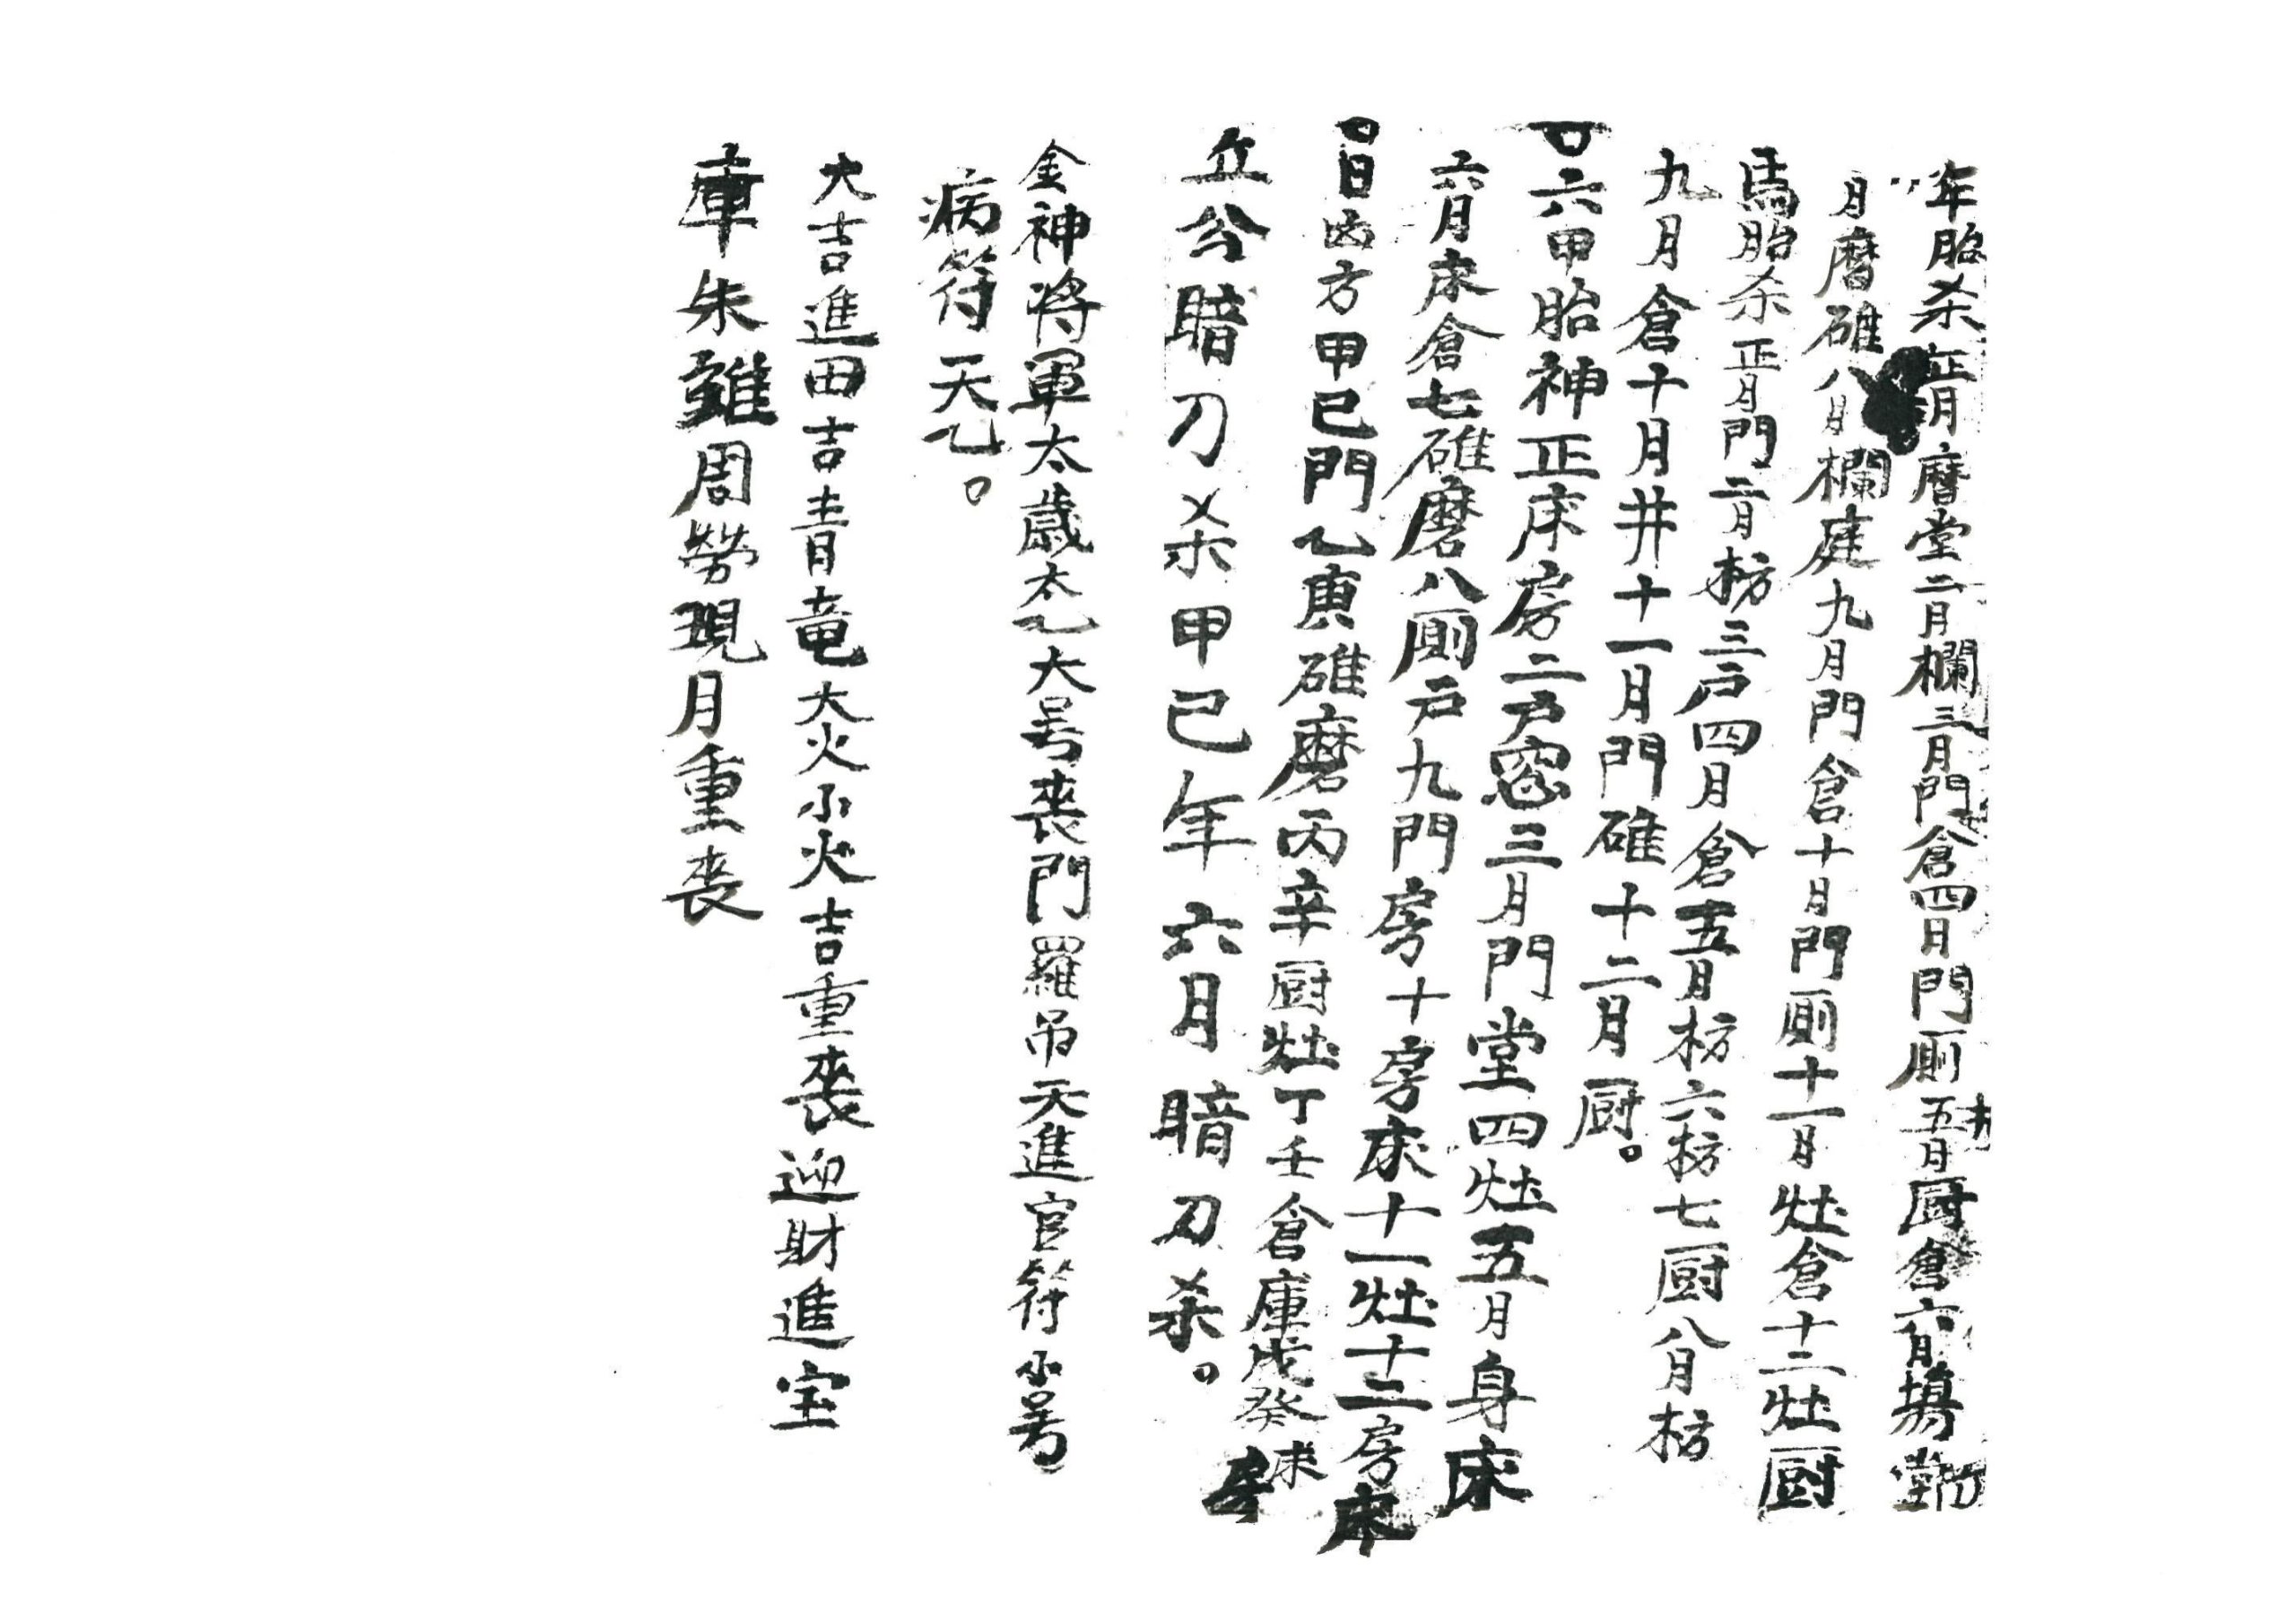 年胎杀正月磨堂二月欄三月門倉四月門厠五月厨倉六月堂
月磨碓八月欄庭九月門倉十月門厠十一月灶倉十二灶厨
馬胎杀正月門二月枋三戸四月倉五月枋六枋七厨八月枋
九月倉十月井十一月門碓十二月厨。
六甲胎神正床房二戸窓三月門堂四灶五月身床
六月床倉七碓磨八厠戸九門房十房床十一灶十二房床
日凶方甲己門乙庚碓磨丙辛厨灶丁壬倉庫戊癸房床
丘兮暗刀杀甲己年六月暗刀杀。
金神将軍太歳太乙大号喪門羅吊天進官符小号
病符天乙。
大吉進田吉青竜大火小火吉重喪迎財進宝
庫朱雖周勞現月重喪